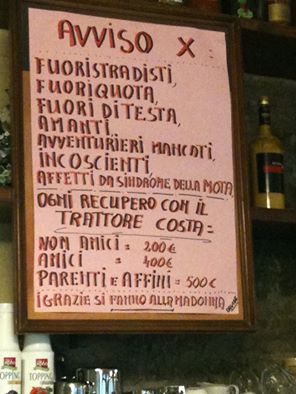 AVVISO X :
FUORISTRADISTI,
FUORIQUOTA,
FUORI DI TESTA,
AMANTI,
AVVENTURIERI MANCATI,
INCOSCIENTI,
AFFETTI DA SINDROME DELLA MOTA
OGNI RECUPERO CON IL
TRATTORE COSTA =
NON AMICI = 200 €
AMICI = 400 €
PARENTI E AFFINI = 500 €
I GRAZIE SI FANNO ALLA MADONNA
TOPPING
TOPPING